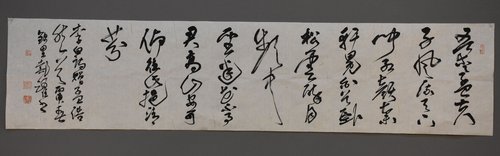 吾愛孟夫
子風流天下
聞紅顏棄
軒冕白首臥
松雲醉月
頻中
聖迷花不事
君高山安可
仰徒此揖清
芬
李白詩贈孟浩